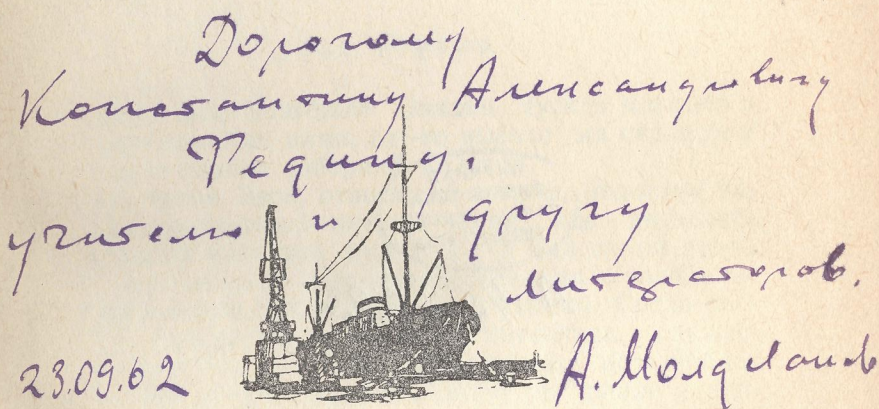 Дорогому
Константину Александровичу
Федину.
учителю и другу
литераторов.
23.09.62 А. Молдаванов